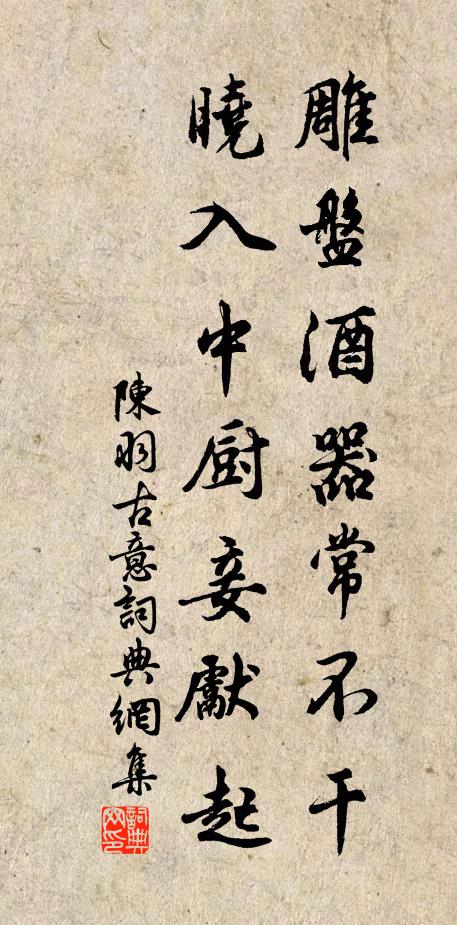 雕盤酒器常不干
曉入中厨妾獻起
陳羽古意詞典網集
詞典网印